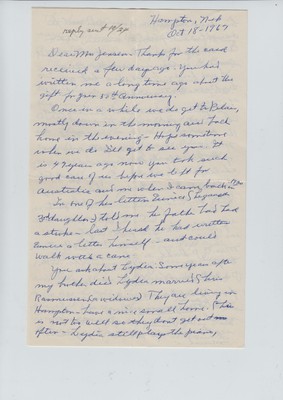 reply sent 10/24
Hampton, Neb
Oct 18-1967
Dear Mr Jensen: Thanks for the card
received a few days ago. You had
written me a long time ago about the
gift for your 40th Anniversary.
Once in a while we do get to Blair,
mostly down in the morning and back
home in the evening - Hope sometime
when we do I'll get to see you. It
is 42 years ago now you took such
good care of us before we left for
Australia and me when I came back
In one of her letters Eunice
daughter) told me the father had had
a stroke - last I heard he had written
Eunice a letter himself - and could
walk with a cane -
You ask about Lydia. Some years after
my brother died Lydia married Chris
Rasmussen (a widower) They are living in
Hampton - have a nice small home. Chris
is not too well so they don't get out
often - Lydia still plays the piano,